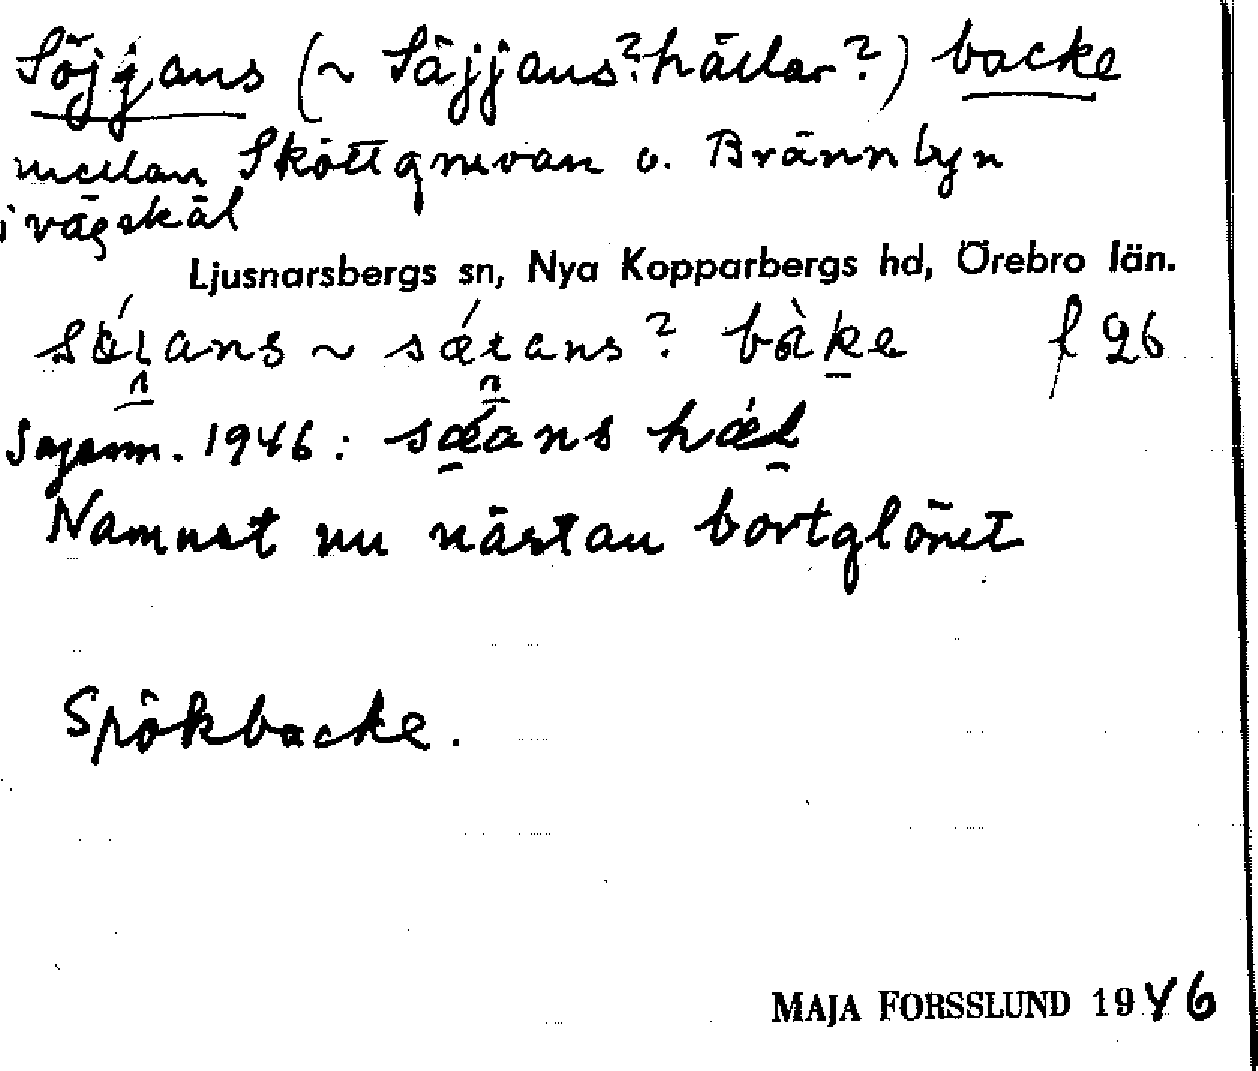 Söjjans (~ Säjjans? hällar?) backe
mellan Skottgruvan o. Brännbyn
i vägskäl
Ljusnarsbergs sn, Nya Kopparbergs hd, Örebro län.
bàke f 26
1946:
Namnet nu nästan bortglömt
Spökbacke.
MAJA FORSSLUND 1946